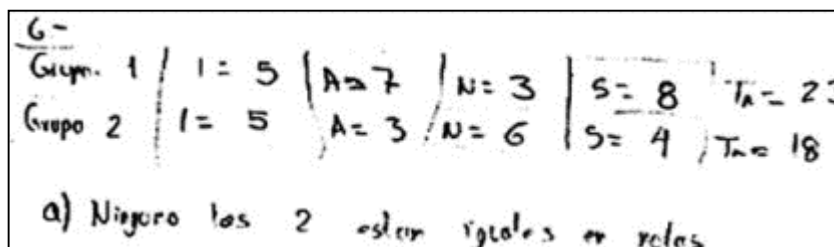 6-
Grupo 1 | I = 5 | A = 7 | N = 3 | S = 8 Tn = 23
Grupo 2 | I = 5 | A = 3 | N = 6 | S = 4 | Tn = 18
a) Ninguno los 2 estan iguales en